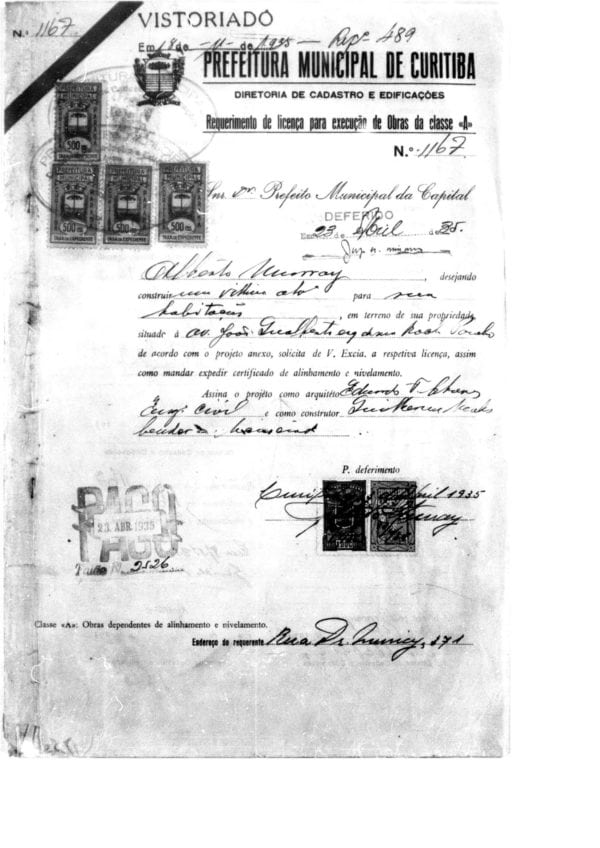 N.º 1167
VISTORIADO
Em 18 de -11- de 1935 - 489
PREFEITURA MUNICIPAL DE CURITIBA
DIRETORIA DE CADASTRO E EDIFICAÇÕES
Requerimento de licença para execução de Obras da classe «A»
N.º 1167
PREFEITURA MUNICIPAL
500
TAXA DE EXPEDIENTE
PREFEITURA MUNICIPAL
500
TAXA DE EXPEDIENTE
PREFEITURA MUNICIPAL
500
TAXA DE EXPEDIENTE
PREFEITURA MUNICIPAL
500
TAXA DE EXPEDIENTE
Snr. Dr. Prefeito Municipal da Capital
DEFERIDO
Em 23 de Abril de 35.
Alberto Murray, desejando
construir para sua
habitação, em terreno de sua propriedade
situado á av. João Gualberto
de acordo com o projeto anexo, solicita de V. Excia. a respetiva licença, assim
como mandar expedir certificado de alinhamento e nivelamento.
Assina o projéto como arquitéto Eduardo F. Chaves
Eng. Civil e como construtor Guilherme
P. deferimento
Abril 1935
PAGO
23 ABR. 1935
PAGO
Talão N. 2526
Classe «A»: Obras dependentes de alinhamento e nivelamento.
Endereço do requerente Rua Dr. Muricy, 371